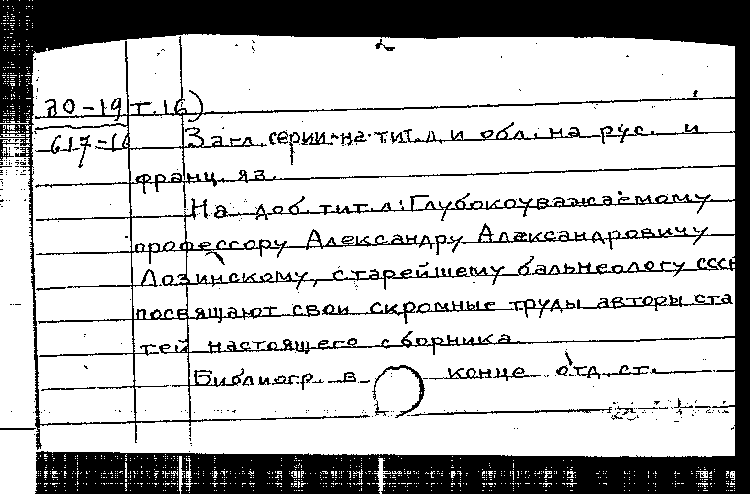 2
30-19 т.16)
617-16 Загл. серии на тит. л. и обл. на рус. и
франц. яз.
На доб. тит. л: Глубокоуважаемому
профессору Александру Александровичу
Лозинскому, старейшему бальнеологу СССР
посвящают свои скромные труды авторы ста
тей настоящего сборника.
Библиогр. в конце отд. ст.